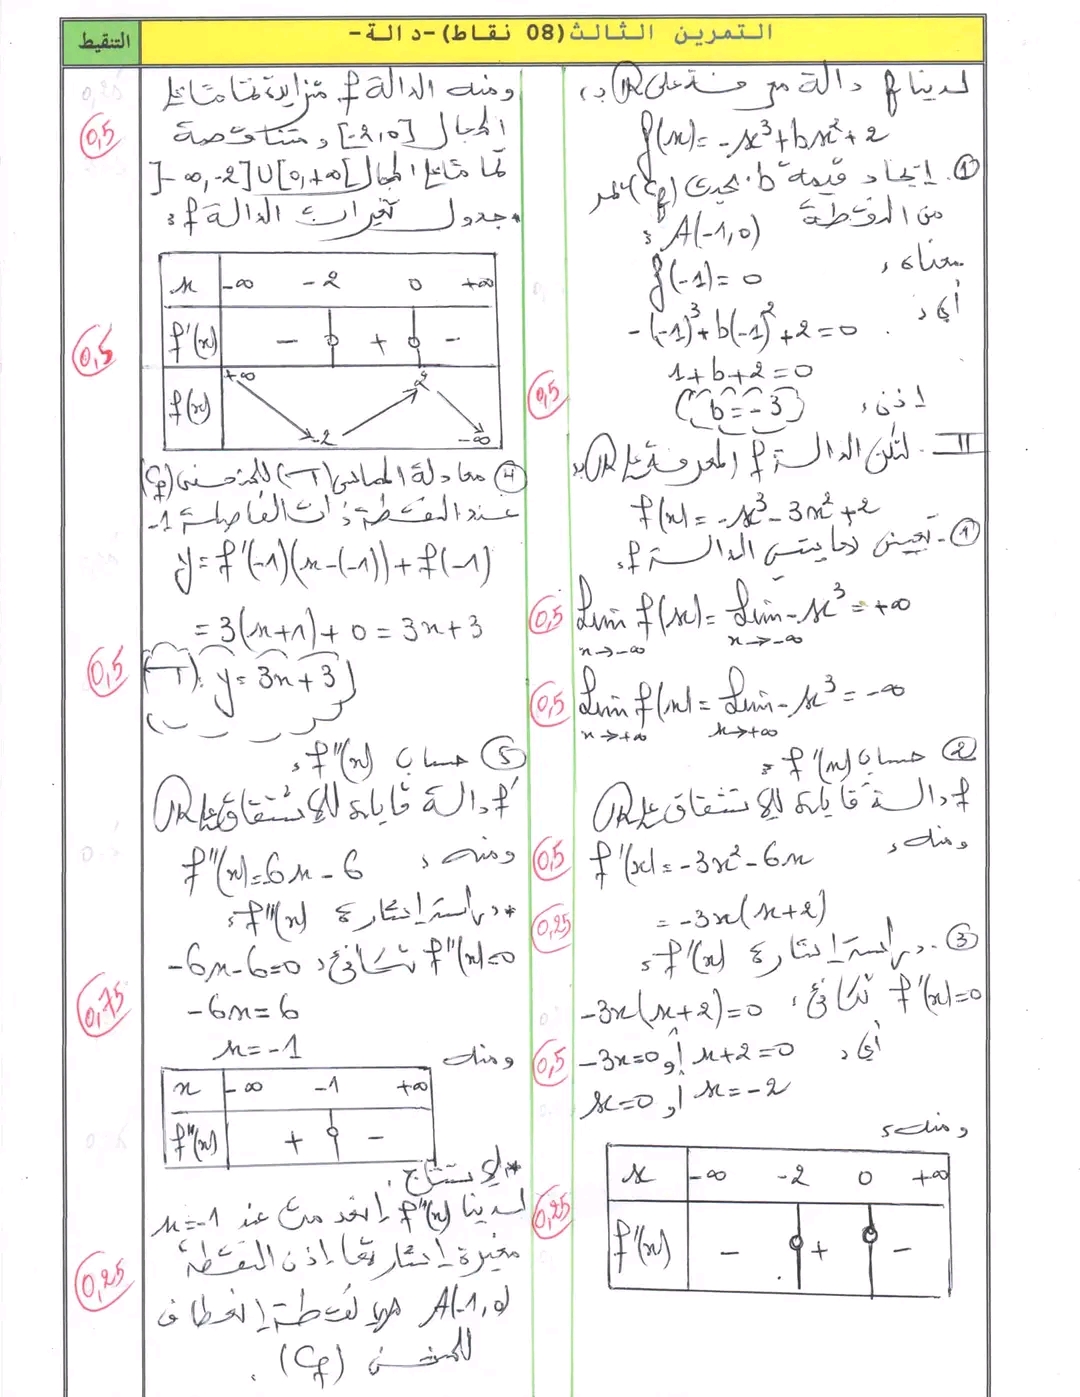 التمرين الثالث(08 نقاط)-دالة-
التنقيط
لدينا f دالة معرفة على R بـ:
f(x)= -x³+bx²+2
① إيجاد قيمة b بحيث (Cf) يمر
من النقطة A(-1,0) :
معناه، f(-1)= 0
أي: -(-1)³+b(-1)²+2=0
1+b+2=0
إذن، b=-3
0,5
II - لتكن الدالة f المعرفة على R بـ:
f(x)= -x³-3x²+2
① - تعيين نهايتي الدالة f.
Lim f(x)= Lim -x³ = +∞
x→-∞ x→-∞
0,5
Lim f(x)= Lim -x³ = -∞
x→+∞ x→+∞
0,5
② حساب f'(x) :
f دالة قابلة للاشتقاق على R
ومنه، f'(x)= -3x²-6x
0,5
= -3x(x+2)
0,25
③ - دراسة إشارة f'(x) :
f'(x)=0 تكافئ، -3x(x+2)=0
أي: x+2=0 أو -3x=0
0,5
x=-2 أو x=0
ومنه:
x -∞ -2 0 +∞
f'(x) - + -
0,25
ومنه الدالة f متزايدة تماما على
المجال [-2,0] و متناقصة
تماما على المجال ]-∞,-2]U[0,+∞[
0,5
• جدول تغيرات الدالة f :
x -∞ -2 0 +∞
f'(x) - + -
f(x) +∞ -2 2 -∞
0,5
④ معادلة المماس (T) للمنحنى (Cf)
عند النقطة ذات الفاصلة -1
y= f'(-1)(x-(-1))+f(-1)
= 3(x+1)+0 = 3x+3
(T): y= 3x+3
0,5
⑤ حساب f''(x) :
f' دالة قابلة للاشتقاق على R
ومنه، f''(x)=-6x-6
* دراسة إشارة f''(x) :
f''(x)=0 تكافئ: -6x-6=0
-6x=6
0,75
ومنه x=-1
x -∞ -1 +∞
f''(x) + -
* الاستنتاج:
لدينا f''(x) انعدمت عند x=-1
مغيرة إشارتها إذن النقطة
A(-1,0) هي نقطة إنعطاف
0,25
للمنحنى (Cf).